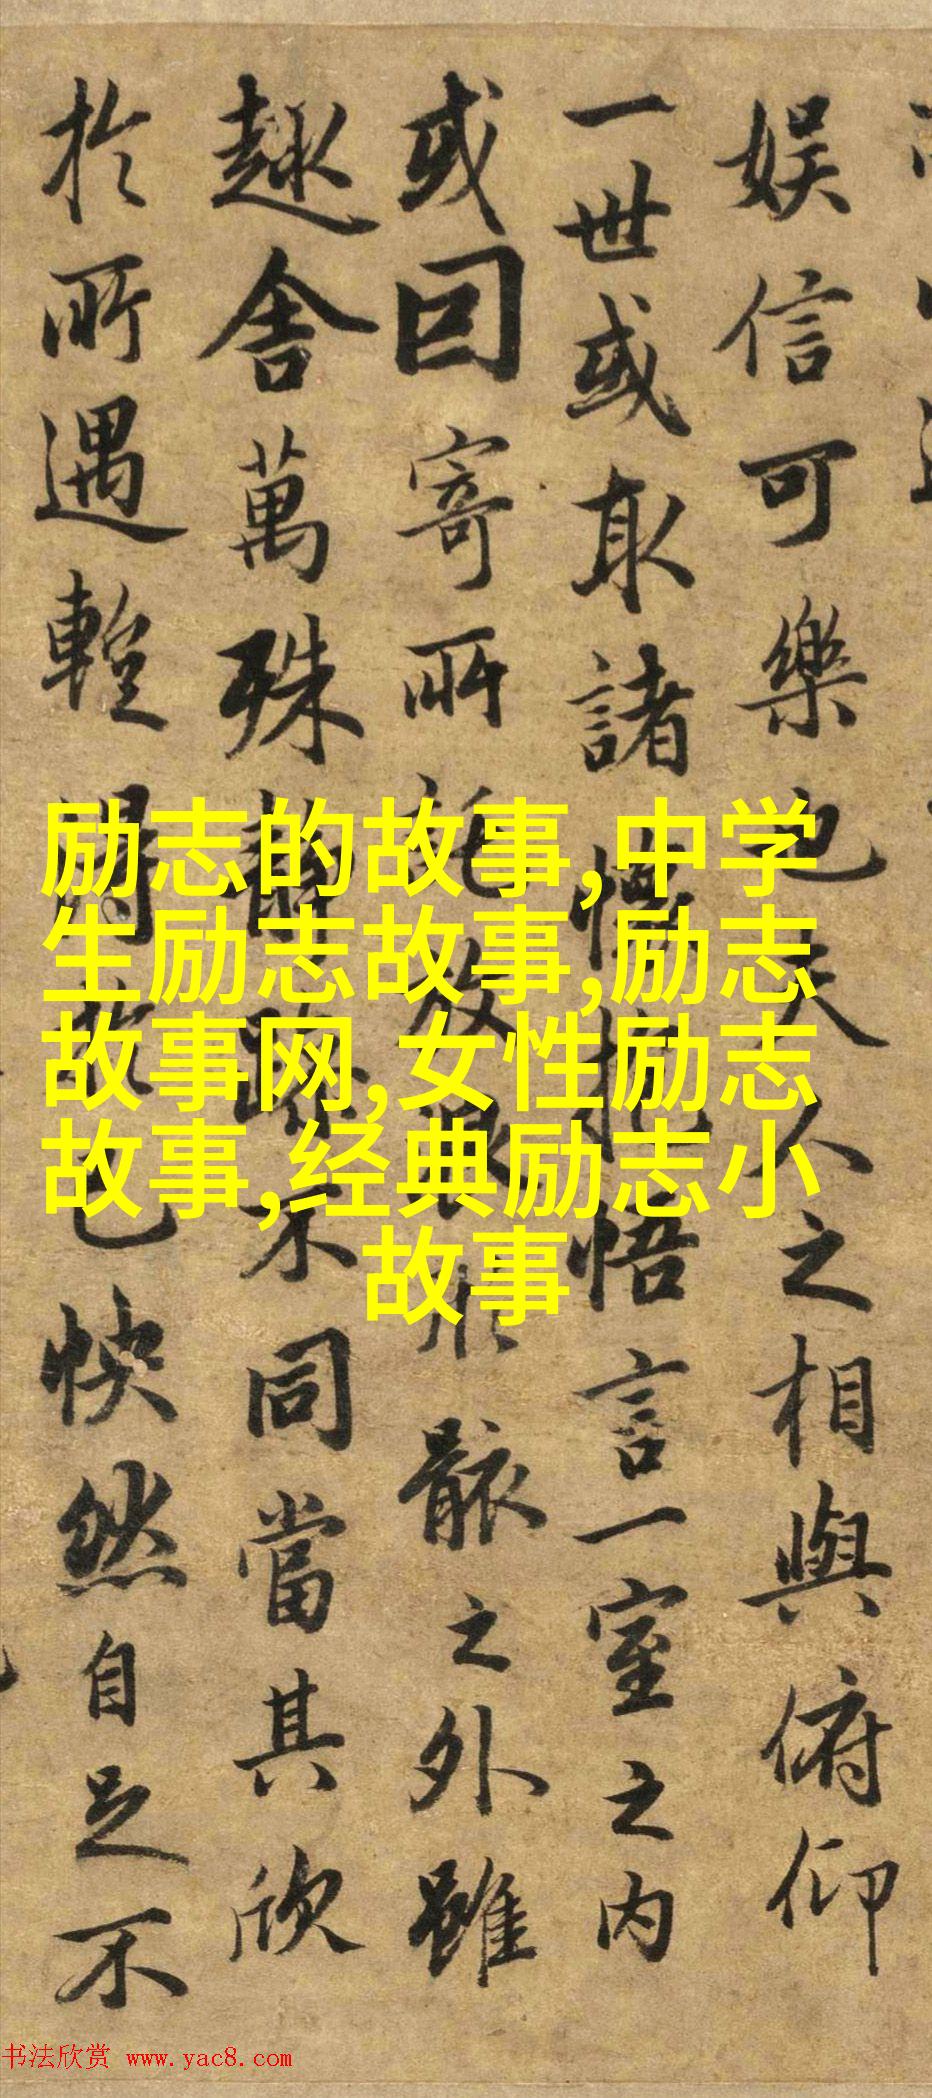 娱信可樂也夫人之相與俯仰
一世或取諸懷抱悟言一室之内
或因寄所託放浪形骸之外雖
趣舍萬殊不同當其欣
於所遇己快然自足不
励志的故事,中学
生励志故事,励志
故事网,女性励志
故事,经典励志小
故事
书法欣赏 www.yac8.com